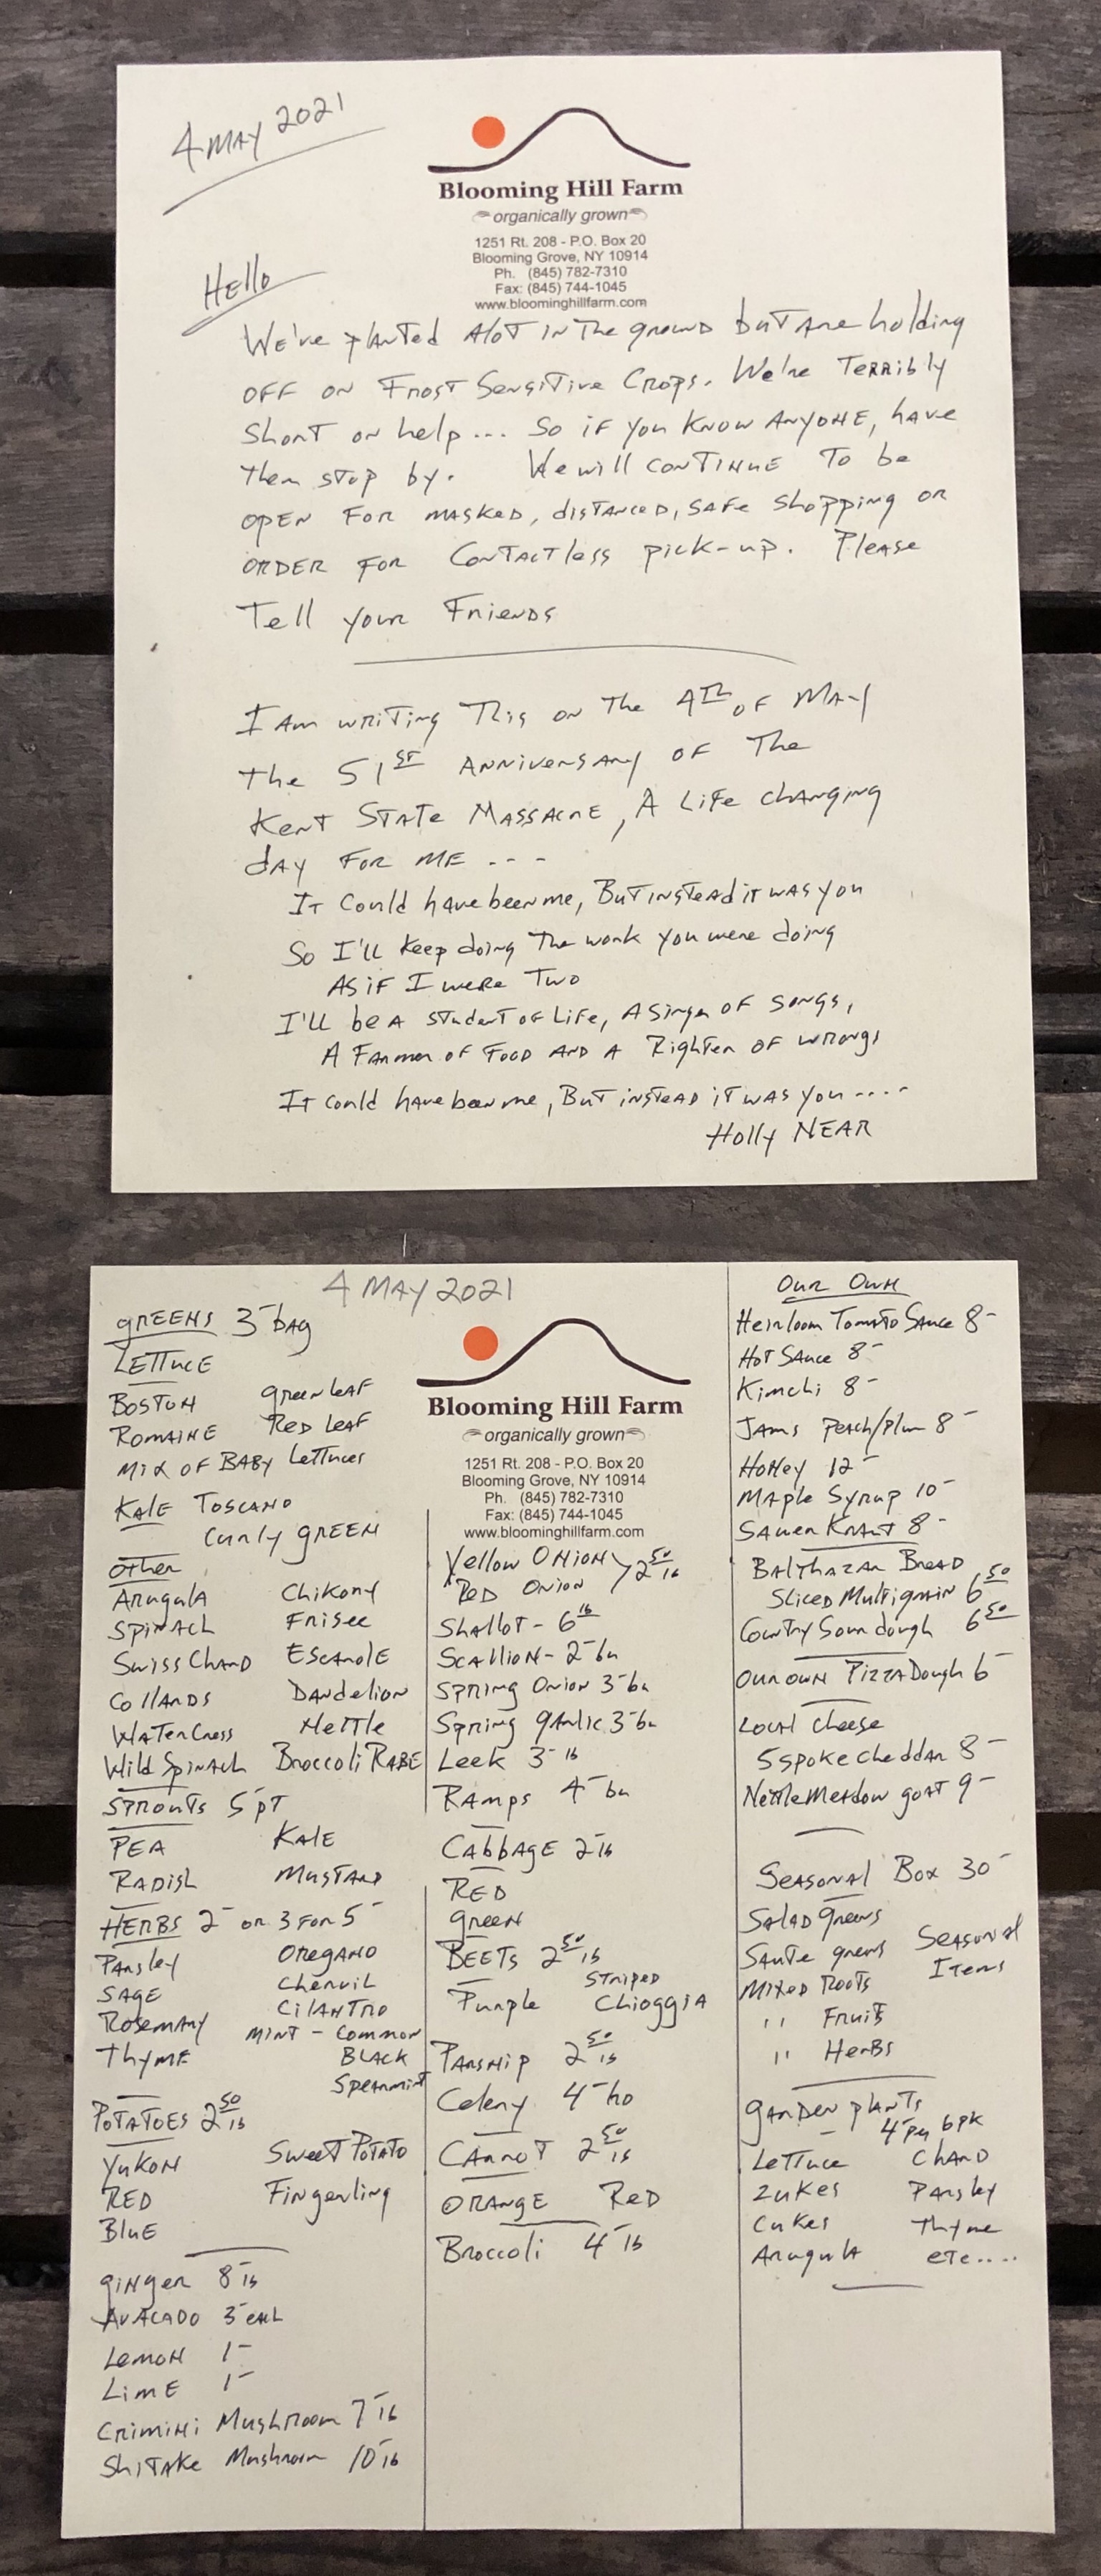 4 MAY 2021
Blooming Hill Farm
organically grown
1251 Rt. 208 - P.O. Box 20
Blooming Grove, NY 10914
Ph. (845) 782-7310
Fax: (845) 744-1045
www.bloominghillfarm.com
Hello
We've planted alot in the ground but are holding
off on Frost Sensitive Crops. We're Terribly
Short on help... So if you know anyone, have
them stop by. We will continue to be
open for masked, distanced, safe shopping or
order for Contactless pick-up. Please
Tell your Friends
I am writing This on the 4th of May
the 51st Anniversary of The
Kent State Massacre, A Life changing
day for me ...
It could have been me, But instead it was you
So I'll keep doing the work you were doing
As if I were Two
I'll be a student of Life, A singer of songs,
A Farmer of Food and a Righter of wrongs
It could have been me, But instead it was you ....
Holly NEAR
4 MAY 2021
Blooming Hill Farm
organically grown
1251 Rt. 208 - P.O. Box 20
Blooming Grove, NY 10914
Ph. (845) 782-7310
Fax: (845) 744-1045
www.bloominghillfarm.com
GREENS 3- bag
LETTUCE
Boston green leaf
Romaine Red Leaf
Mix of Baby Lettuces
Kale Toscano
Curly green
other
Arugula Chikory
Spinach Frisee
Swiss Chard Escarole
Collards Dandelion
Watercress Nettle
Wild Spinach Broccoli Rabe
Sprouts 5 pt
Pea Kale
Radish Mustard
Herbs 2- or 3 for 5-
Parsley Oregano
Sage Chervil
Rosemary Cilantro
Thyme Mint - Common
Black
Spearmint
Potatoes 2 50 lb
Yukon Sweet Potato
Red Fingerling
Blue
Ginger 8 lb
Avacado 3- each
Lemon 1-
Lime 1-
Crimini Mushroom 7- lb
Shitake Mushroom 10- lb
Yellow Onion
Red Onion 2 50 lb
Shallot - 6 lb
Scallion - 2- bu
Spring Onion 3- bu
Spring garlic 3- bu
Leek 3- lb
Ramps 4- bu
Cabbage 2- lb
Red
green
Beets 2 50 lb
Purple Striped Chioggia
Parsnip 2 50 lb
Celery 4- hd
Carrot 2 50 lb
Orange Red
Broccoli 4- lb
Our Own
Heirloom Tomato Sauce 8-
Hot Sauce 8-
Kimchi 8-
Jams Peach/Plum 8-
Honey 12-
Maple Syrup 10-
Sauer Kraut 8-
Balthazar Bread
Sliced Multigrain 6 50
Country Sourdough 6 50
Our own Pizza Dough 6-
Local cheese
5 spoke Cheddar 8-
Nettle Meadow goat 9-
Seasonal Box 30-
Salad greens
Saute greens Seasonal
Mixed Roots Items
" Fruit
" Herbs
garden plants
4- per 6 pk
Lettuce Chard
Zukes Parsley
Cukes Thyme
Arugula etc....